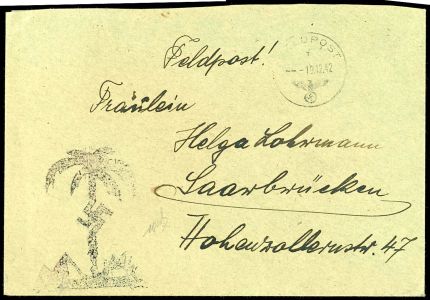 Feldpost!
FELDPOST
- - - 19.12.42
Fräulein
Helga Lohrmann
Saarbrücken
Hohenzollernstr. 47